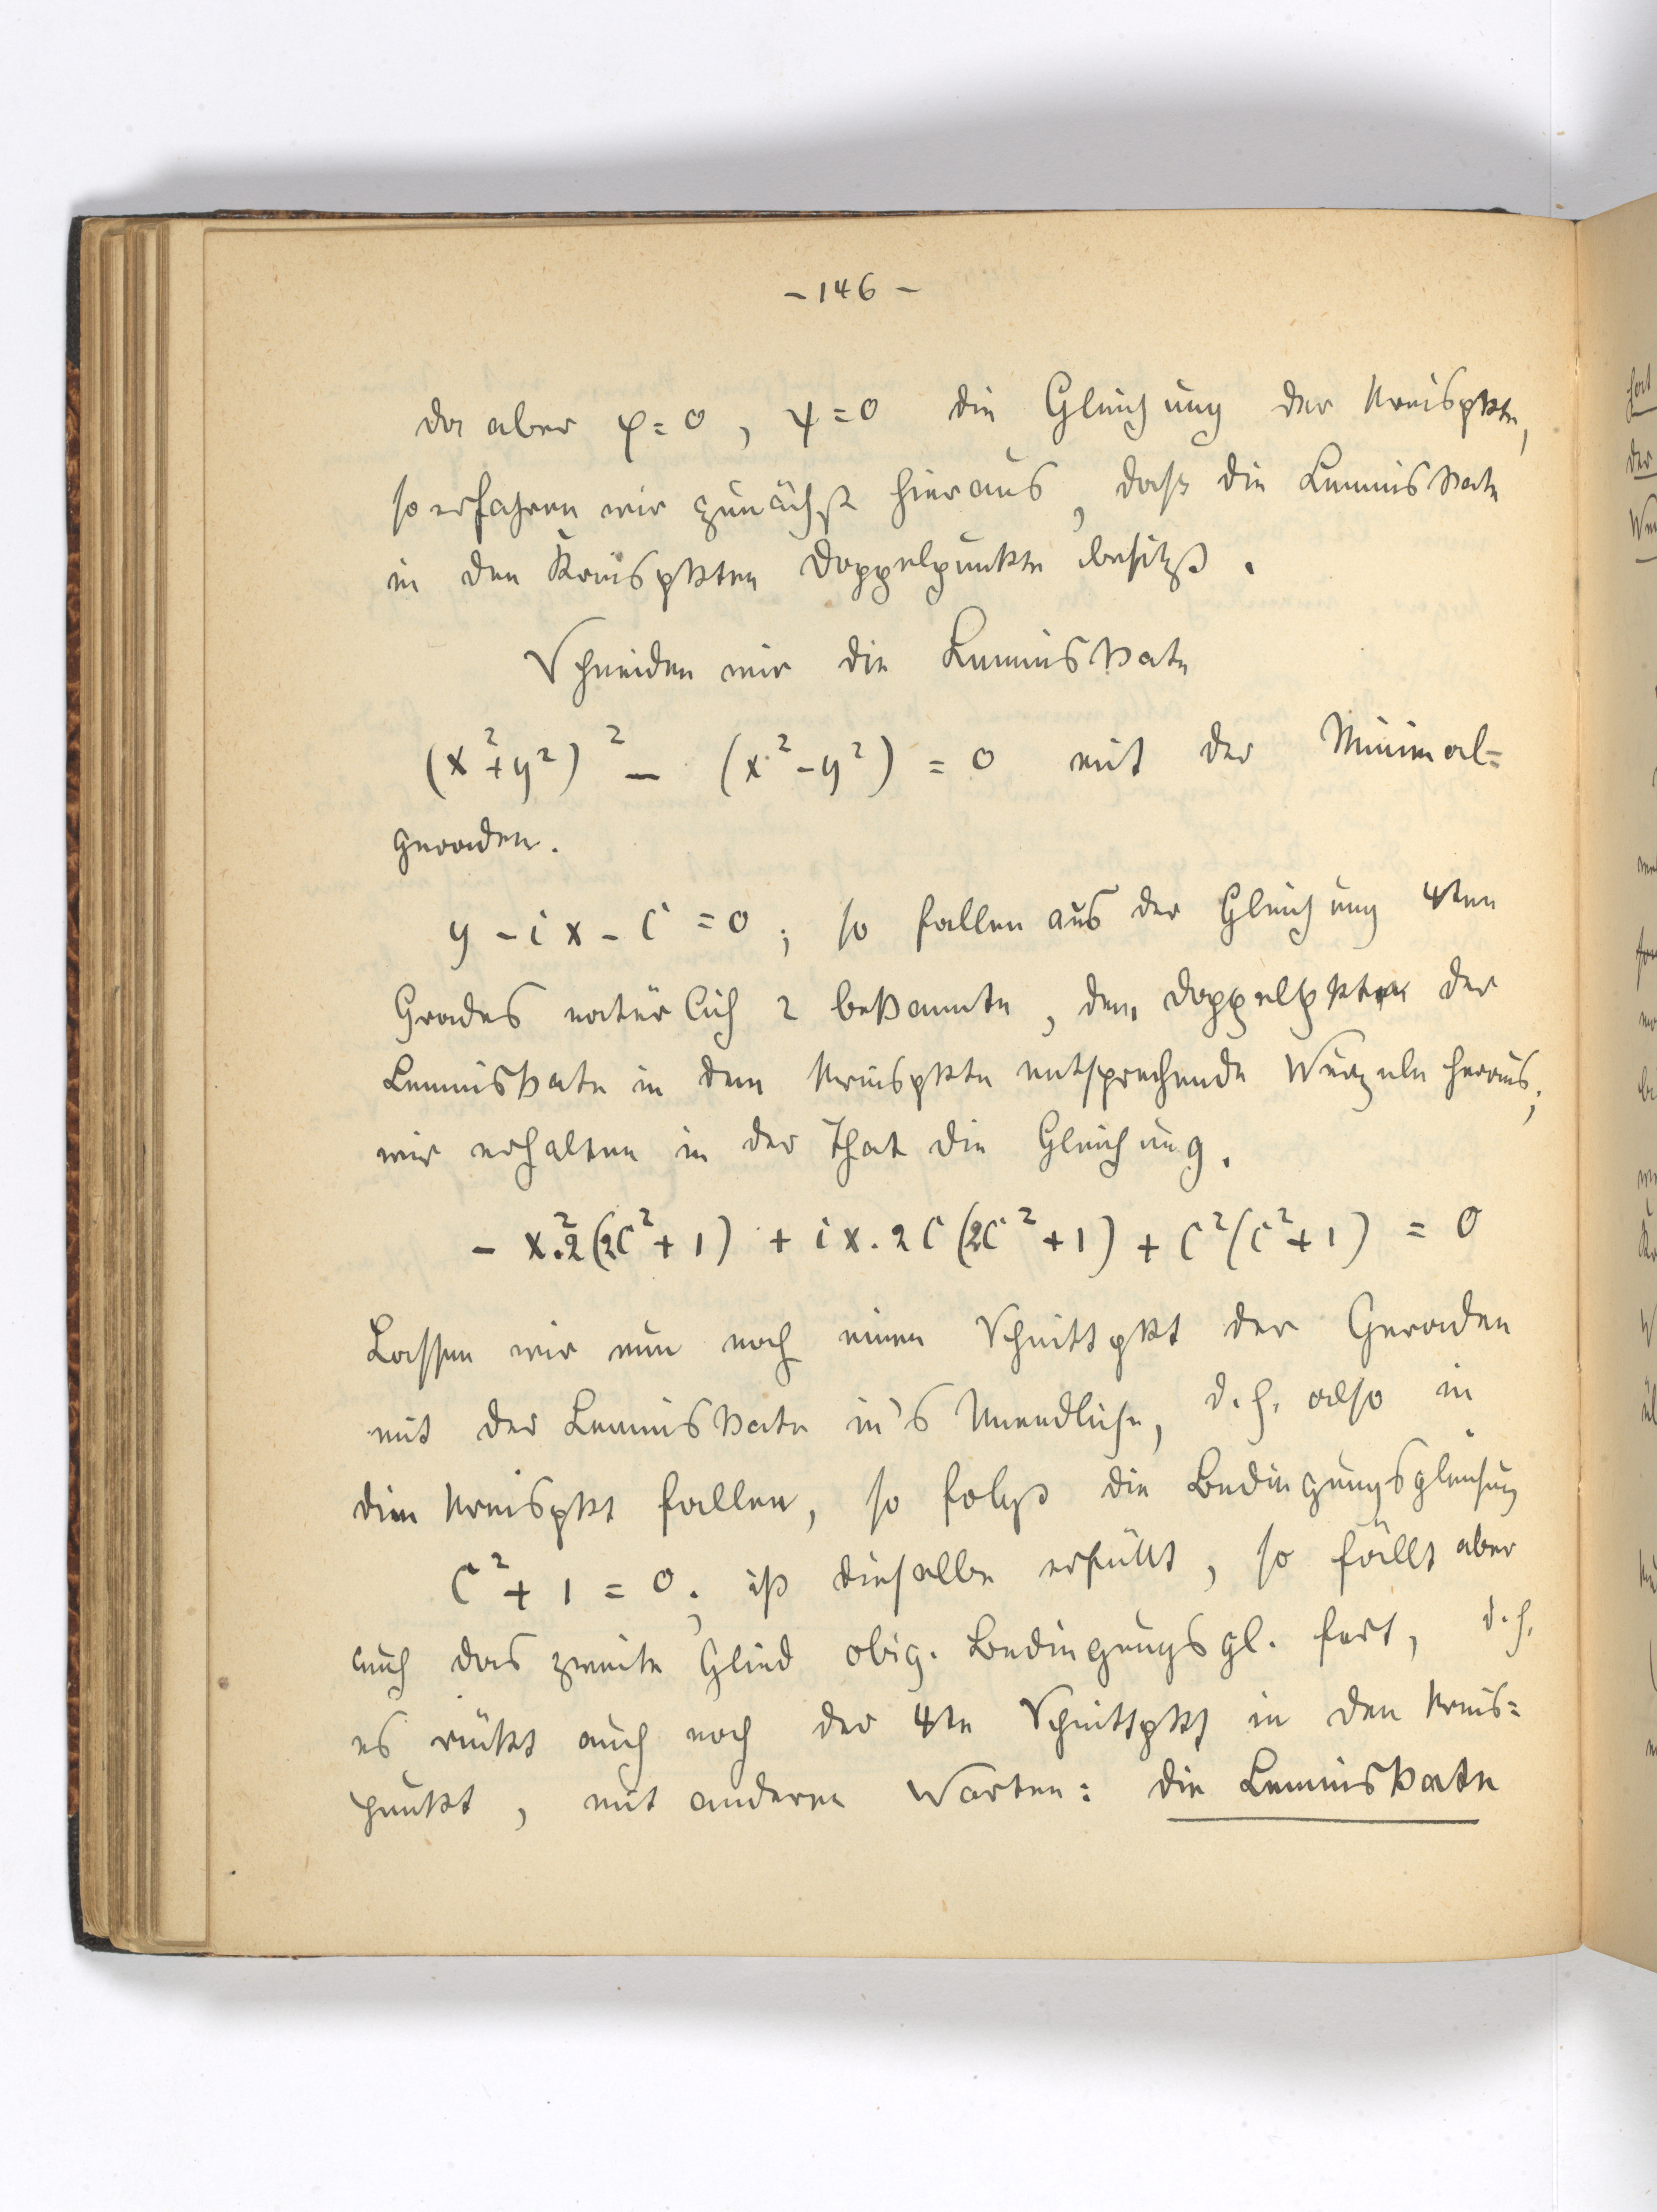 - 146 -
da aber φ = 0, ψ = 0 die Gleichung der Kreispkte,
so erfahren wir zunächst hieraus, dass die Lemniskate
in den Kreispkten Doppelpunkte besitzt.
Schneiden wir die Lemniskate
(x²+y²)² - (x²-y²) = 0 mit der Minimal=
geraden.
y - ix - C = 0; so fallen aus der Gleichung 4ten
Grades natürlich 2 bekannte, dem Doppelpkte der
Lemniskate in dem Kreispkte entsprechende Wurzeln heraus;
wir erhalten in der That die Gleichung.
- x².2(2C²+1) + ix.2C(2C²+1) + C²(C²+1) = 0
Lassen wir nun noch einen Schnittpkt der Geraden
mit der Lemniskate in's Unendliche, d.h. also in
den Kreispkt fallen, so folgt die Bedingungsgleichung
C²+1 = 0; ist dieselbe erfüllt, so fällt aber
auch das zweite Glied obig. Bedingungsgl. fort, d.h.
es rückt auch noch der 4te Schnittpkt in den Kreis=
punkt, mit anderen Worten: die Lemniskate